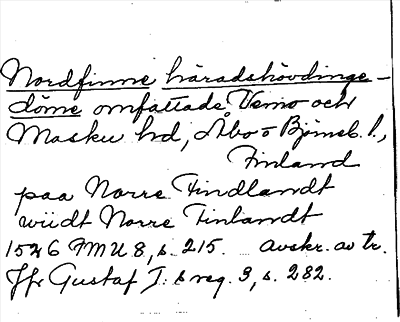 Nordfinne häradshövdinge-
döme omfattade Vemo och
Masku hd, Åbo o Björneb. l.,
Finland
paa Norre Findlandt
wiidt Norre Finlandt
1526 FMU 8, s. 215. avskr. av tr.
Jfr Gustaf I:s reg. 3, s. 282.